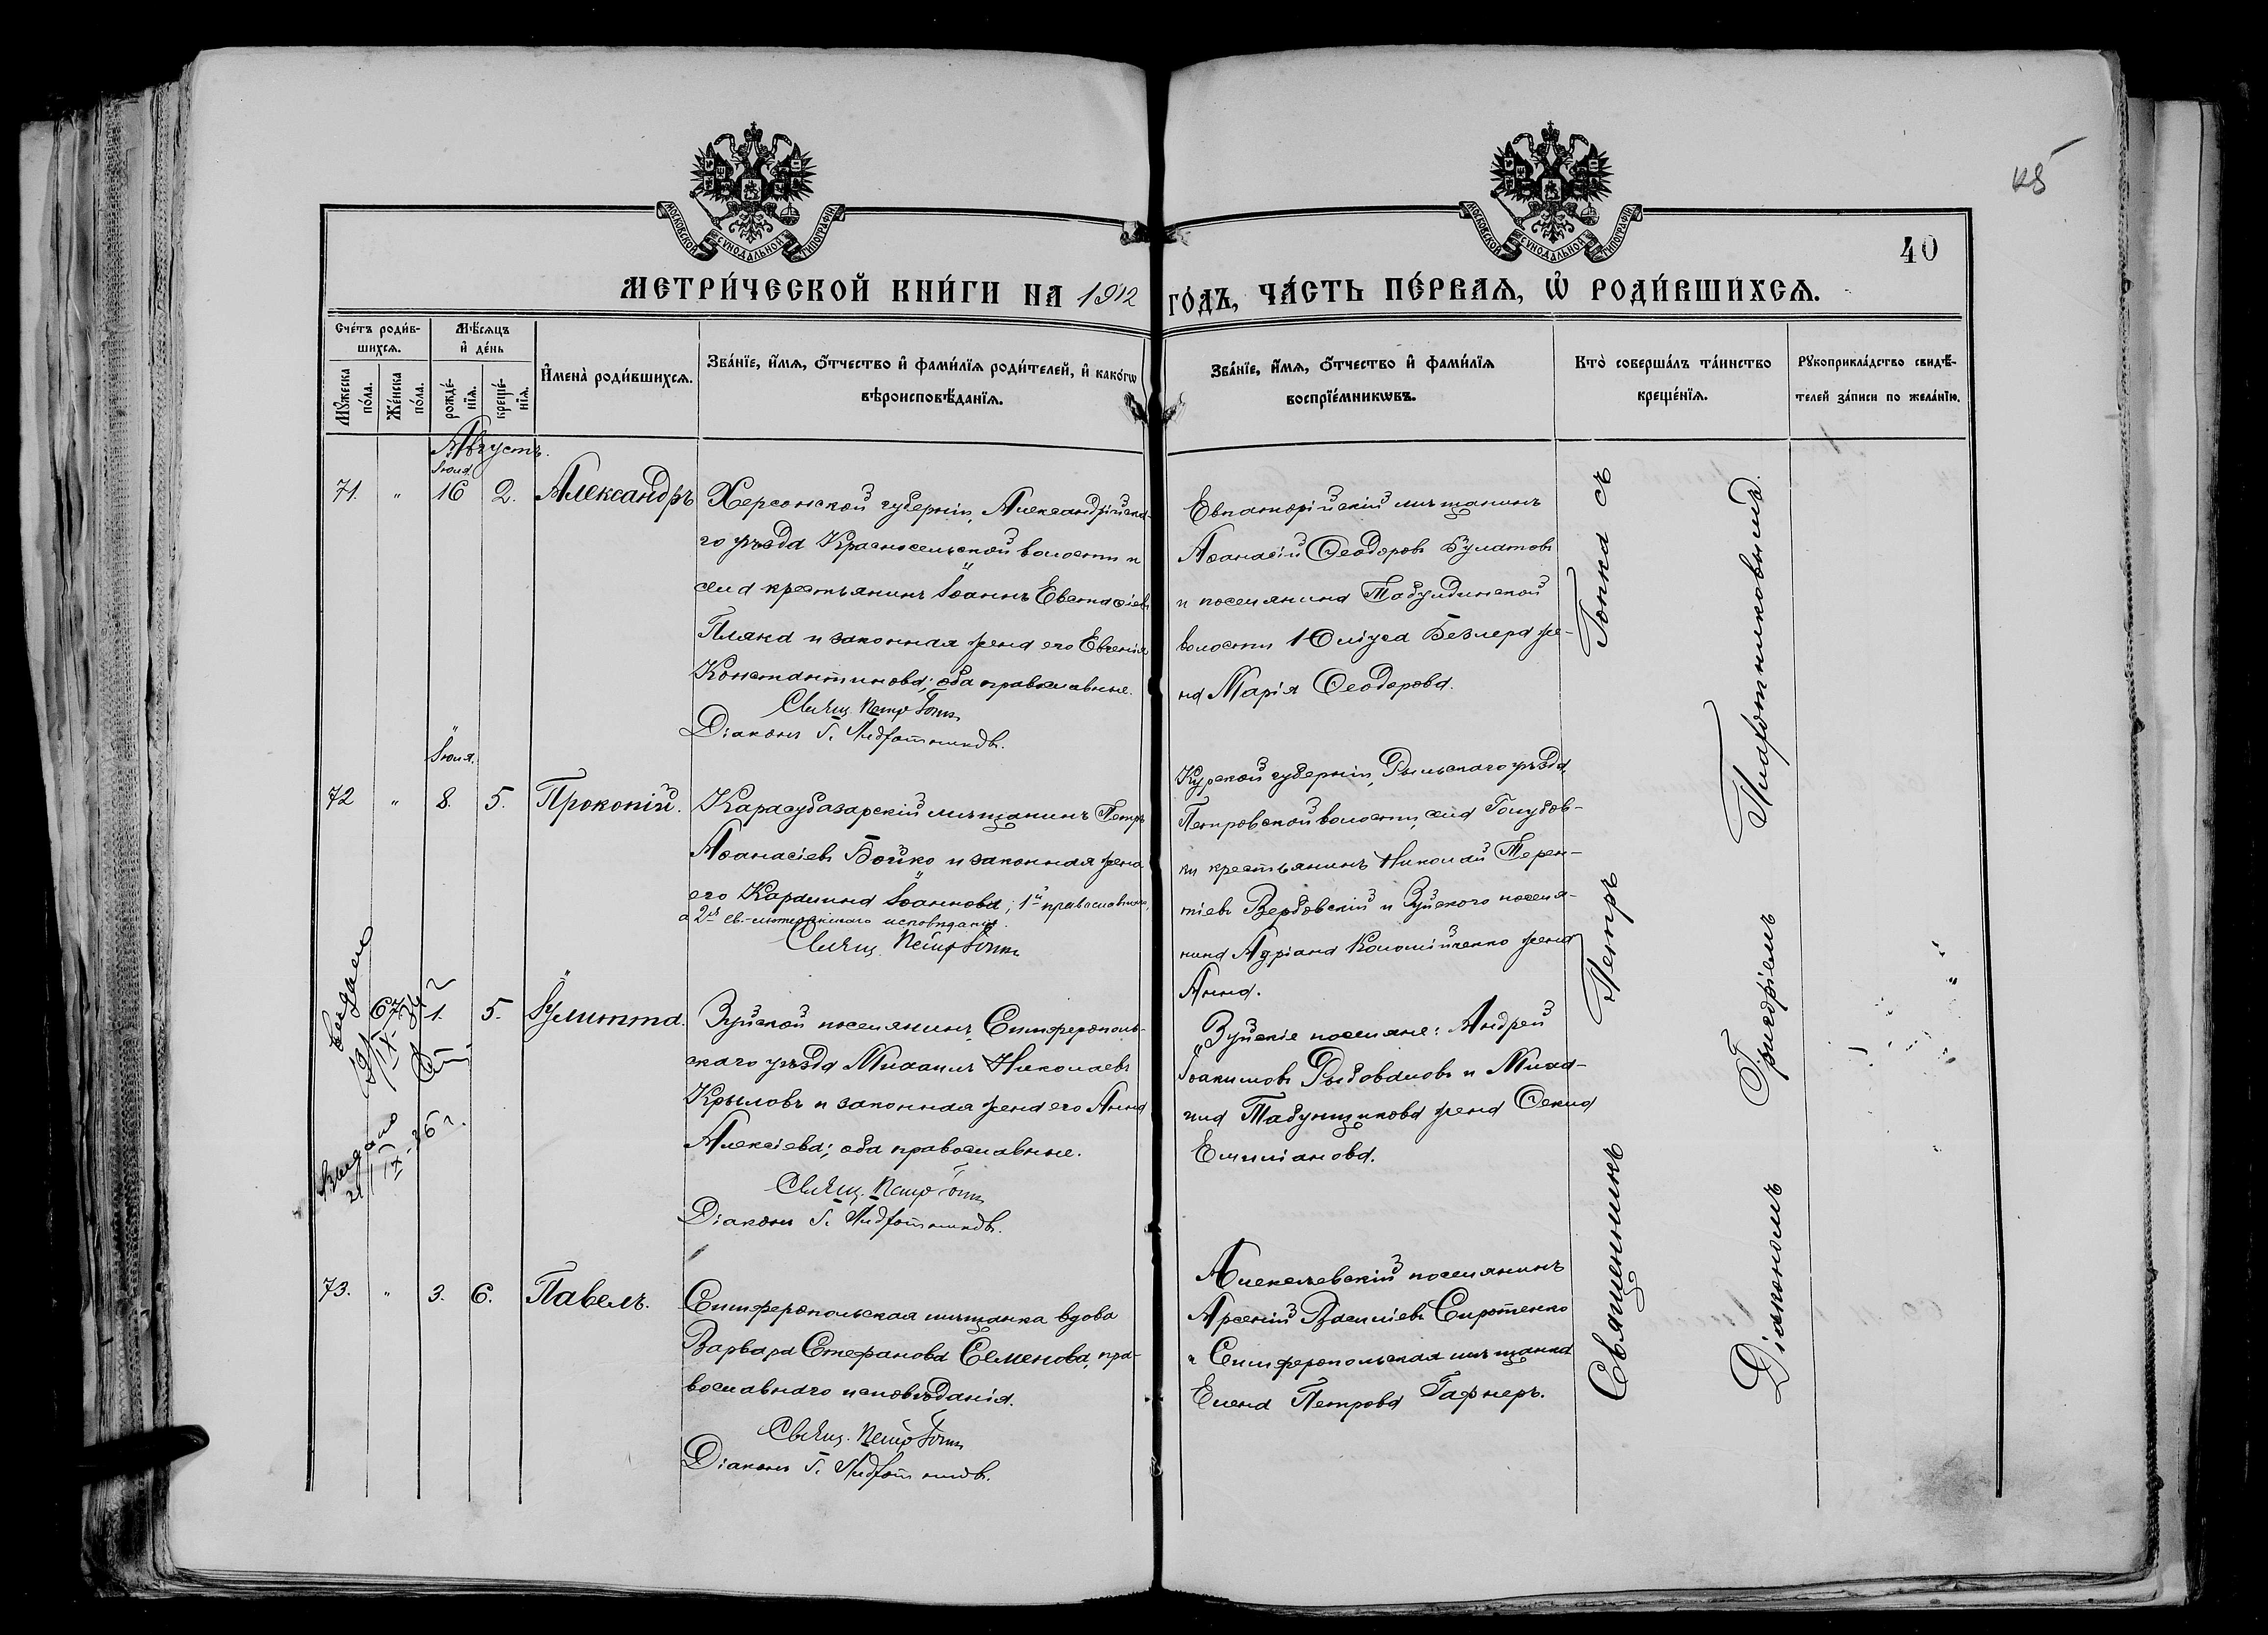 45
40
МОСКОВСКОЙ СѴНОДАЛЬНОЙ ТИПОГРАФІИ
МОСКОВСКОЙ СѴНОДАЛЬНОЙ ТИПОГРАФІИ
МЕТРИ́ЧЕСКОЙ КНИ́ГИ НА 1912 ГО́ДЪ, ЧА́СТЬ ПЕ́РВАЯ, Ѡ҆ РОДИ́ВШИХСЯ.
Счетъ роди́в-
шихся.
Мꙋ́жеска по́ла.
Же́нска по́ла.
Мѣ́сяцъ
и҆ де́нь
рожде́-
нїя.
креще́-
нїя.
И҆мена̀ роди́вшихся.
Зва́нїе, и҆́мя, ѻ҆́тчество и҆ фами́лїя роди́телей, и҆ како́гѡ
вѣроисповѣ́данїя.
Зва́нїе, и҆́мя, ѻ҆́тчество и҆ фами́лїя
воспрїе́мникѡвъ.
Кто̀ соверша́лъ та́инство
креще́нїя.
Рꙋкоприкла́дство свидѣ́-
телей за́писи по жела́нїю.
Августъ.
Іюля
71. " 16 2. Александръ
Херсонской губерніи, Александрійска-
го уѣзда Красносельской волости и
села крестьянинъ Іоаннъ Евстаѳіевъ
Пляка и законная жена его Евгенія
Константинова; оба православные.
Священ. Петръ Гонка
Діаконъ Г. Плотниковъ.
Евпаторійскій мѣщанинъ
Аѳанасій Ѳеодоровъ Булатовъ
и поселянина Табулдинской
волости Юліуса Безлера же-
на Марія Ѳеодорова.
Іюля.
72 " 8. 5. Прокопій.
Карасубазарскій мѣщанинъ Петръ
Аѳанасіевъ Бойко и законная жена
его Каролина Іоаннова; 1й православнаго,
а 2я ев.-лютеранскаго исповѣданія.
Священ. Петръ Гонка
Курской губерніи, Рыльскаго уѣзда,
Петровской волости, села Голубов-
ки крестьянинъ Николай Терен-
тіевъ Вербовскій и Зуйскаго поселя-
нина Адріана Коломійченко жена
Анна.
67 1. 5. Іулитта.
Зуйской поселянинъ, Симферополь-
скаго уѣзда Михаилъ Николаевъ
Крыловъ и законная жена его Анна
Алексіева; оба православные.
Священ. Петръ Гонка
Діаконъ Г. Плотниковъ.
Зуйскіе поселяне: Андрей
Іоакимовъ Рыбоваловъ и Миха-
ила Табунщикова жена Ѳекла
Емиліанова.
Выдано
Выдано
21/IX-36 г.
73. " 3. 6. Павелъ.
Симферопольская мѣщанка вдова
Варвара Стефанова Семенова, пра-
вославнаго исповѣданія.
Священ. Петръ Гонка
Діаконъ Г. Плотниковъ.
Алексѣевскій поселянинъ
Арсеній Василіевъ Сиротенко
и Симферопольская мѣщанка
Елена Петрова Гафнеръ.
Священникъ Петръ Гонка съ
Діакономъ Григоріемъ Плотниковымъ.